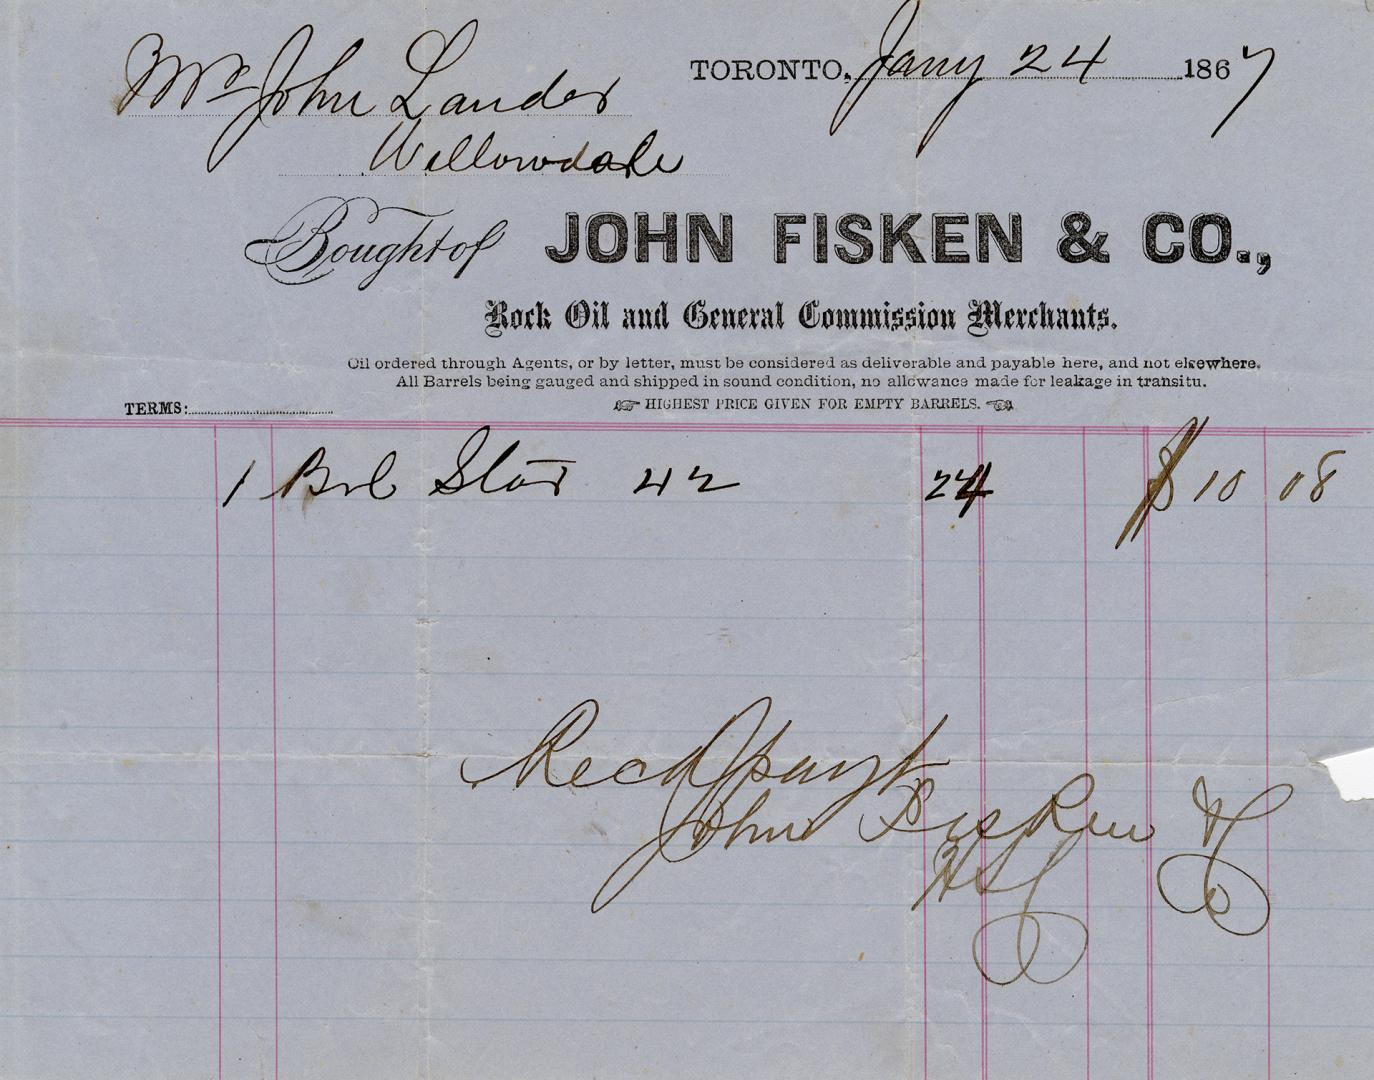 TORONTO, Jany 24 1867
Mr John Lander
Willowdale
Bought of JOHN FISKEN & CO.,
Rock Oil and General Commission Merchants.
Oil ordered through Agents, or by letter, must be considered as deliverable and payable here, and not elsewhere.
All Barrels being gauged and shipped in sound condition, no allowance made for leakage in transitu.
TERMS:
HIGHEST PRICE GIVEN FOR EMPTY BARRELS.
1 Brl Star 42 24 $ 10 08
Recd payt
John Fisken & Co